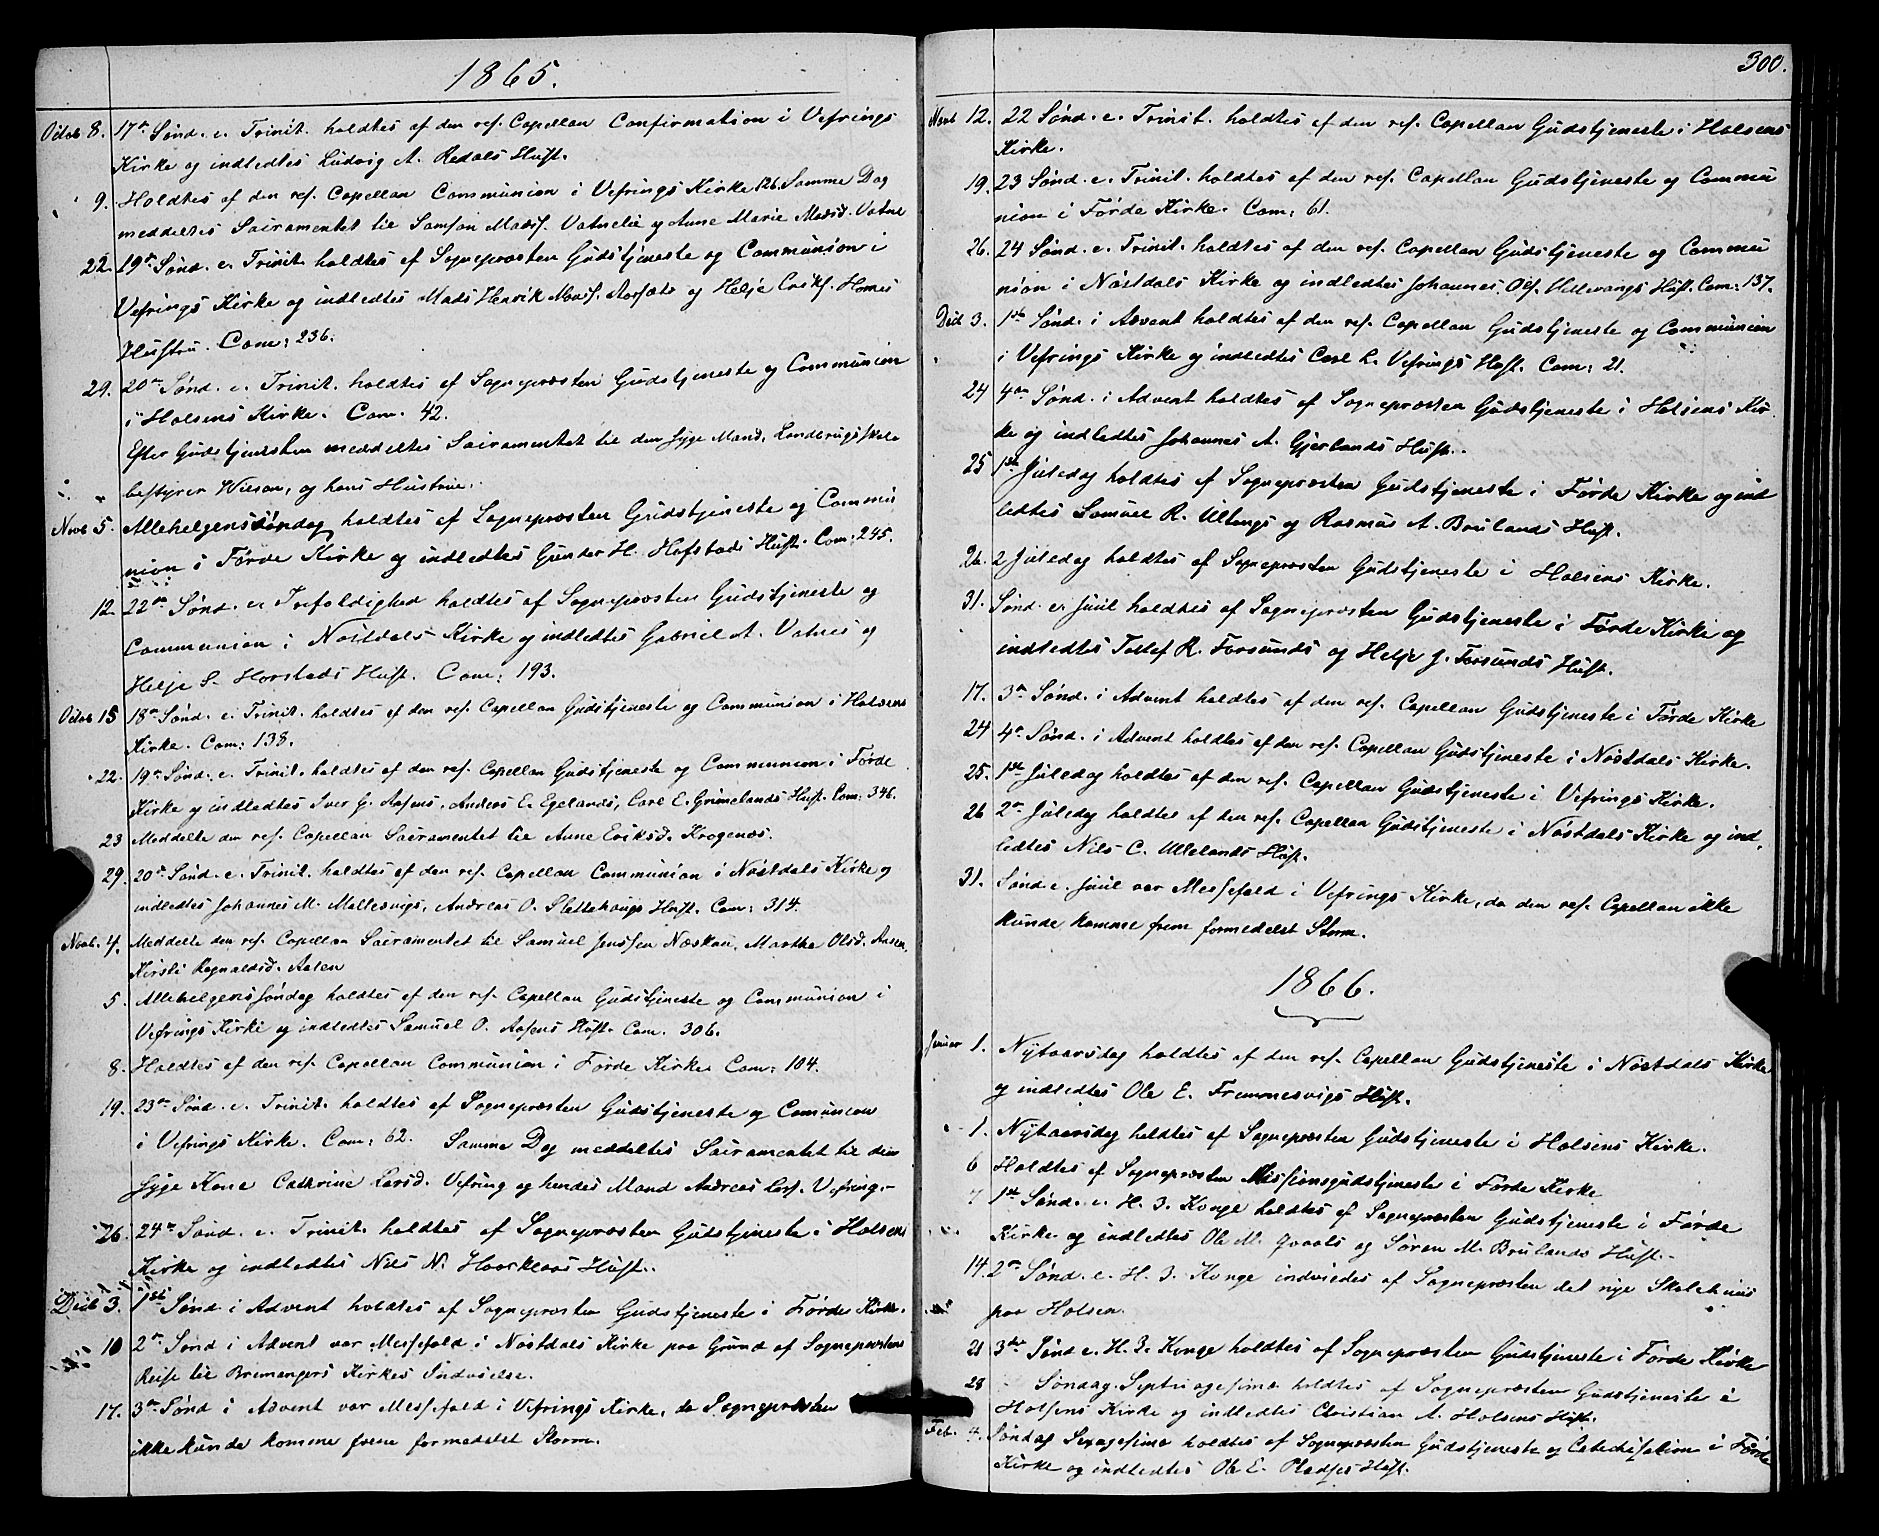 1865.
Octob 8. 17de Sønd. e. Trinit. holdtes af den res. Capellan Confirmation i Vefrings
Kirke og indledtes Ludvig A. Redals Hust.
9. Holdtes af den res. Capellan Communion i Vefrings Kirke 126. Samme Dag
meddeltes Sacramentet til Samson Madss. Vatnelie og Anne Marie Madsd. Vatne
22. 19de Sønd. e. Trinit. holdtes af Sognepræsten Gudstjeneste og Communion i
Vefrings Kirke og indledtes Mads Henrik Monss. og Helje Eriks. Hornes
Hustru. Com: 236.
29. 20de Sønd. e. Trinit. holdtes af Sognepræsten Gudstjeneste og Communion
i Holsens Kirke. Com. 42.
Efter Gudstjenesten meddeltes Sacramentet til den syge Mand, Landbrugsskole
bestyrer Wilson, og hans Hustrue.
Novb 5. Allehelgenssøndag holdtes af Sognepræsten Gudstjeneste og Commu
nion i Førde Kirke og indledtes Gunder H. Hafstads Hust. Com: 245.
12. 22de Sønd. e. Trefoldighed holdtes af Sognepræsten Gudstjeneste og
Communion i Nøstdals Kirke og indledtes Gabriel A. Vatnes og
Helje S. Horstads Hust. Com: 193.
Octob 15 18de Sønd. e. Trinit. holdtes af den res. Capellan Gudstjeneste og Communion i Holsens
Kirke. Com: 138.
22. 19de Sønd. e. Trinit. holdtes af den res. Capellan Gudstjeneste og Communion i Førde
Kirke og indledtes Iver G. Aasens, Anders E. Egelands, Carl E. Grimelands Hust. Com: 346.
23 Meddelte den res. Capellan Sacramentet til Anne Eriksd. Krogenæs.
29. 20de Sønd. e. Trinit. holdtes af den res. Capellan Communion i Nøstdals Kirke og
indledtes Johannes M. Mallesvigs, Andreas O. Slettehaugs Hust. Com: 314.
Novb. 4. Meddelte den res. Capellan Sacramentet til Samuel Jenssen Næskau, Marthe Olsd. Aasen,
Kirsti Ragnaldsd. Aasen
5. Allehelgenssøndag holdtes af den res. Capellan Gudstjeneste og Communion i
Vefrings Kirke og indledtes Samuel O. Aasens Hust. Com. 306.
8. Holdtes af den res. Capellan Communion i Førde Kirke Com: 104.
19. 23de Sønd. e. Trinit. holdtes af Sognepræsten Gudstjeneste og Comunion
i Vefrings Kirke. Com: 62. Samme Dag meddeltes Sacramentet til den
syge Kone Cathrine Larsd. Vefring og hendes Mand Andreas Lars. Vefring.-
26. 24de Sønd. e. Trinit. holdtes af Sognepræsten Gudstjeneste i Holsens
Kirke og indledtes Nils N. Haarklaus Hust.
Decb 3. 1ste Sønd i Advent holdtes af Sognepræsten Gudstjeneste i Førde Kirke.
10 2de Sønd i Advent var Messefald i Nøstdals Kirke paa Grund af Sognepræstens
Reise til Bremangers Kirkes Indvielse.
17. 3de Sønd i Advent var Messefald i Vefrings Kirke, da Sognepræsten
ikke kunde komme frem formedelst Storm.
300.
Novb 12. 22 Sønd. e. Trinit. holdtes af den res. Capellan Gudstjeneste i Holsens
Kirke.
19. 23 Sønd. e. Trinit. holdtes af den res. Capellan Gudstjeneste og Commu
nion i Førde Kirke. Com: 61.
26. 24 Sønd. e. Trinit. holdtes af den res. Capellan Gudstjeneste og Commu
nion i Nøstdals Kirke og indledtes Johannes Ols. Hellevangs Hust. Com: 137.
Decb 3. 1ste Sønd. i Advent holdtes af den res. Capellan Gudstjeneste og Communion
i Vefrings Kirke og indledtes Carl L. Vefrings Hust. Com: 21.
24 4de Sønd. i Advent holdtes af Sognepræsten Gudstjeneste i Holsens Kir-
ke og indledtes Johannes A. Gjerlands Hust.
25 1ste Juledag holdtes af Sognepræsten Gudstjeneste i Førde Kirke og ind
ledtes Samuel R. Ultangs og Rasmus A. Brulands Hust.
26. 2 Juledag holdtes af Sognepræsten Gudstjeneste i Holsens Kirke.
31. Sønd. e. Juul holdtes af Sognepræsten Gudstjeneste i Førde Kirke og
indledtes Tollef R. Farsunds og Helje J. Farsunds Hust.
17. 3de Sønd. i Advent holdtes af den res. Capellan Gudstjeneste i Førde Kirke
24 4de Sønd. i Advent holdtes af den res. Capellan Gudstjeneste i Nøstdals Kirke.
25. 1ste Juledag holdtes af den res. Capellan Gudstjeneste i Vefrings Kirke.
26 2de Juledag holdtes af den res. Capellan Gudstjeneste i Nøstdals Kirke og ind.
ledtes Nils C. Ullelands Hust.
31. Sønd e. Juul var Messefald i Vefrings Kirke, da den res. Capellan ikke
kunde komme frem formedelst Storm.
1866.
Januar 1. Nytaarsdag holdtes af den res. Capellan Gudstjeneste i Nøstdals Kirke
og indledtes Ole E. Frammesvigs Hust.
1. Nytaarsdag holdtes af Sognepræsten Gudstjeneste i Holsens Kirke.
6 Holdtes af Sognepræsten Missionsgudstjeneste i Førde Kirke
7 1ste Sønd. e. H. 3. Konge holdtes af Sognepræsten Gudstjeneste i Førde
Kirke og indledtes Ole M. Qvaals og Søren M. Brulands Hust.-
14. 2de Sønd. e. H. 3. Konge indviedes af Sognepræsten det nye Skolehuus
paa Holsen.
21 3die Sønd e. H. 3. Konge holdtes af Sognepræsten Gudstjeneste i Førde Kirke
28 Søndag Septuagesima holdtes af Sognepræsten Gudstjeneste i
Holsens Kirke og indledtes Christian A. Holsens Hust.
Feb. 4. Søndag Sexagesima holdtes af Sognepræsten Gudstjeneste og Catechisation i Førde
Kirke og indledtes Ole E. Pladses Hust.